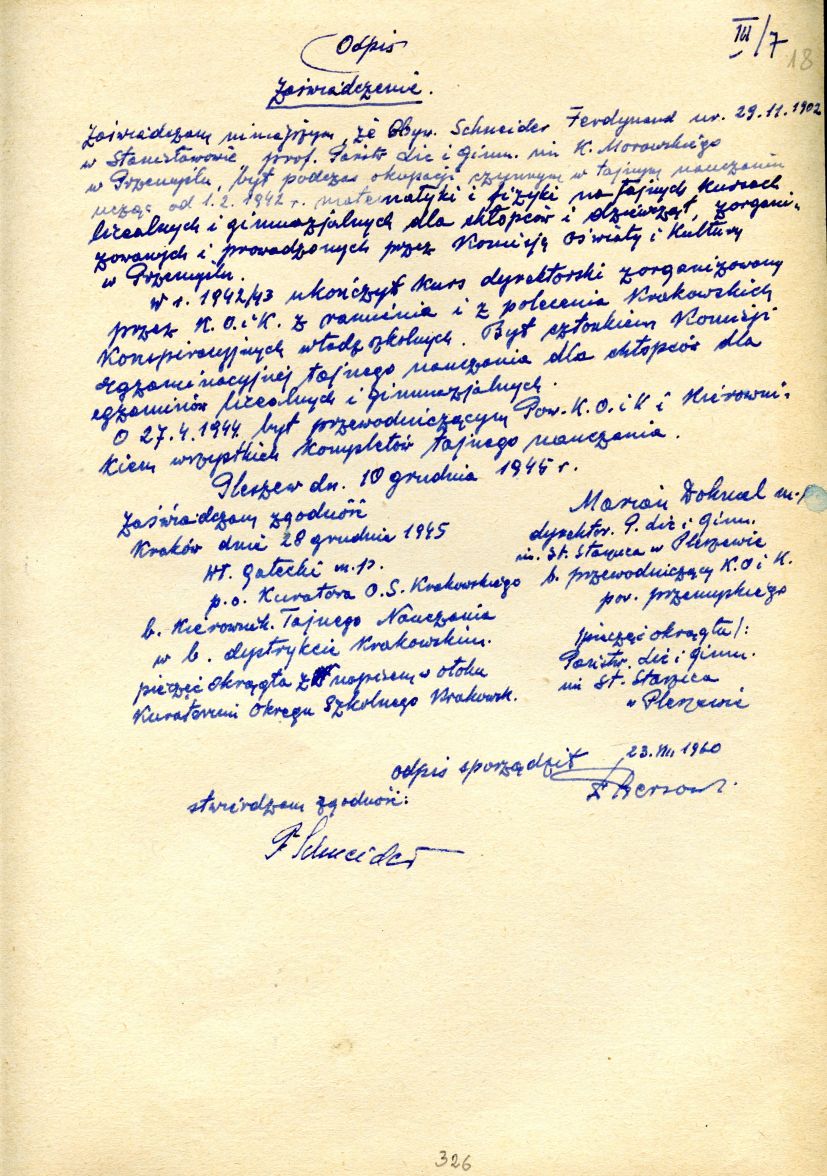 III/7
18
Odpis
Zaświadczenie.
Zaświadczam niniejszym, że Obyw. Schneider Ferdynand ur. 29.11.1902
w Stanisławowie prof. Państw. Lic i Gimn. im K. Morawskiego
w Przemyślu, był podczas okupacji czynnym w tajnym nauczaniu
ucząc od 1.2.1942 r. matematyki i fizyki na tajnych kursach
licealnych i gimnazjalnych dla chłopców i dziewcząt, zorgani-
zowanych i prowadzonych przez Komisję Oświaty i Kultury
w Przemyślu.
W r. 1942/43 ukończył kurs dyrektorski zorganizowany
przez K.O.iK. z ramienia i z polecenia Krakowskich
Konspiracyjnych władz szkolnych. Był członkiem Komisji
egzaminacyjnej tajnego nauczania dla chłopców dla
egzaminów licealnych i gimnazjalnych.
O 27.4.1944 był przewodniczącym Pow. K.O.iK i Kierowni-
kiem wszystkich Kompletów tajnego nauczania.
Pleszew dn. 10 grudnia 1945 r.
Zaświadczam zgodność
Kraków dnia 28 grudnia 1945
Wł. Gałecki m.p.
p.o. Kuratora O.S. Krakowskiego
b. Kierownik Tajnego Nauczania
w b. dystrykcie Krakowskim.
pieczęć okrągła z napisem w otoku
Kuratorium Okręgu Szkolnego Krakowsk.
Marian Dohnal m.p
dyrektor P. Lic i Gimn.
im. St. Staszica w Pleszewie
b. przewodniczący K.O i K.
pow. przemyskiego
/pieczęć okrągła/:
Państw. Lic i Gimn.
im St. Staszica
w Pleszewie
odpis sporządził 23.VII 1960
stwierdzam zgodność:
F Schneider
326